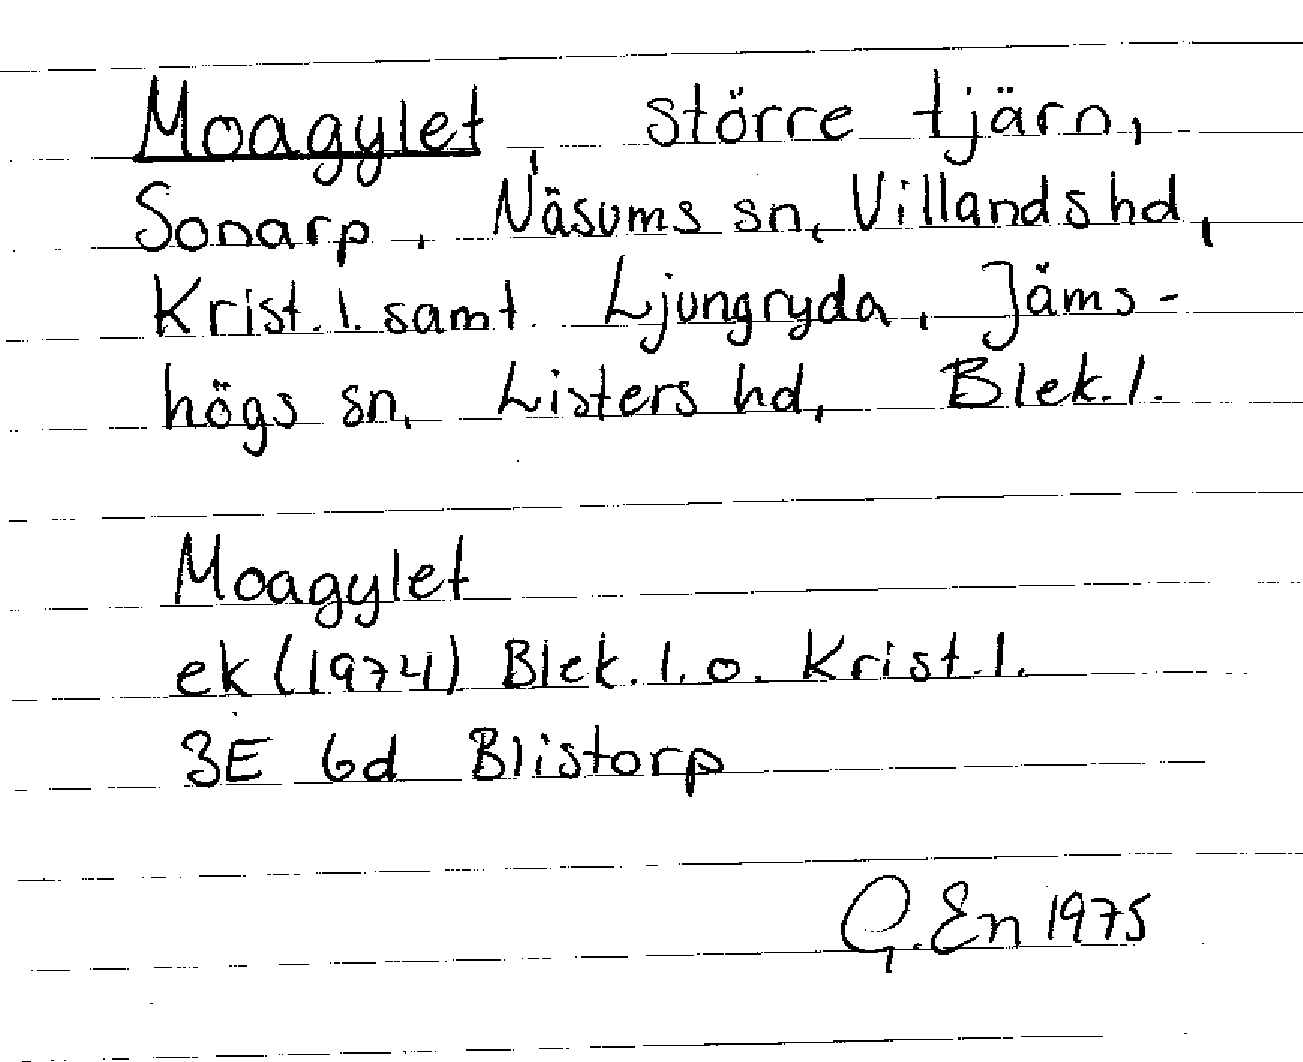 Moagylet, större tjärn,
Sonarp, Näsums sn, Villands hd,
Krist. l. samt Ljungryda, Jäms-
högs sn, Listers hd, Blek. l.
Moagylet
ek (1974) Blek. l. o. Krist. l.
3E 6d Blistorp
G. En 1975